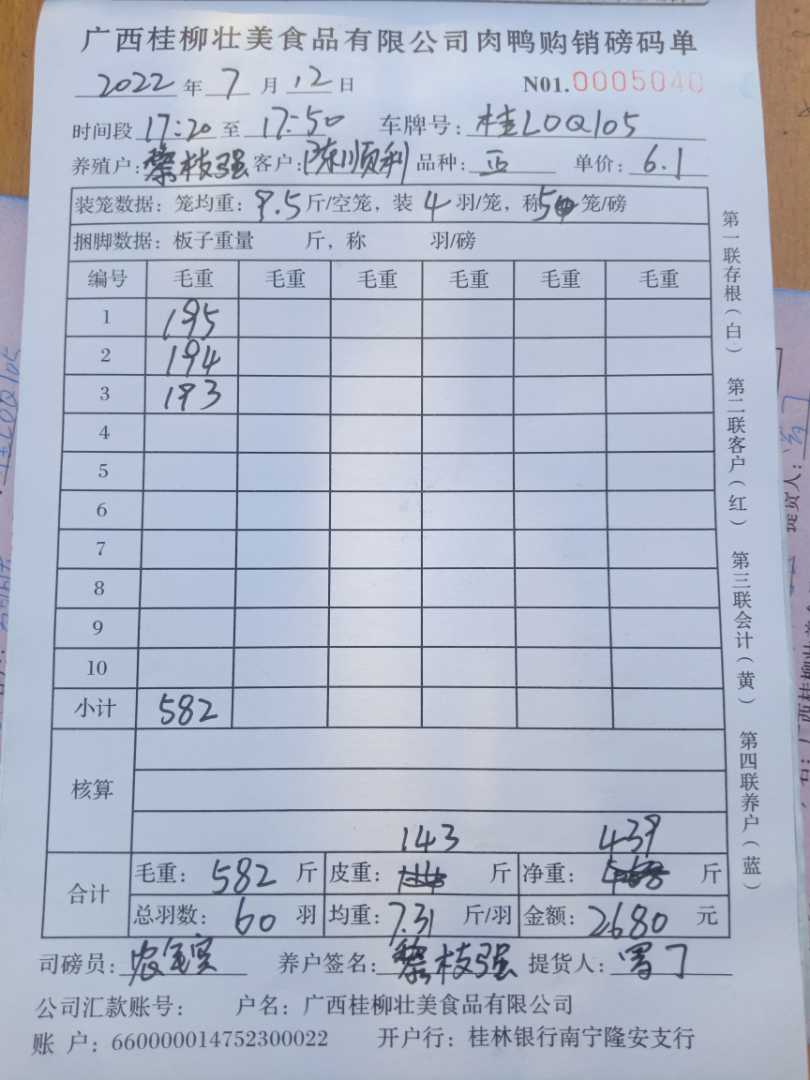 广西桂柳壮美食品有限公司肉鸭购销磅码单
2022 年 7 月 12 日 N01.0005040
时间段 17:20 至 17:50 车牌号: 桂L0Q105
养殖户: 黎枝强 客户: 陈顺利 品种: 正 单价: 6.1
装笼数据: 笼均重: 9.5 斤/空笼, 装 4 羽/笼, 称 5 笼/磅
捆脚数据: 板子重量 斤, 称 羽/磅
编号 毛重 毛重 毛重 毛重 毛重 毛重
1 195
2 194
3 193
4
5
6
7
8
9
10
小计 582
核算
143 439
合计 毛重: 582 斤 皮重: 斤 净重: 斤
总羽数: 60 羽 均重: 7.31 斤/羽 金额: 2680 元
司磅员: 养户签名: 黎枝强 提货人:
公司汇款账号: 户名: 广西桂柳壮美食品有限公司
账 户: 660000014752300022 开户行: 桂林银行南宁隆安支行
第一联存根(白) 第二联客户(红) 第三联会计(黄) 第四联养户(蓝)